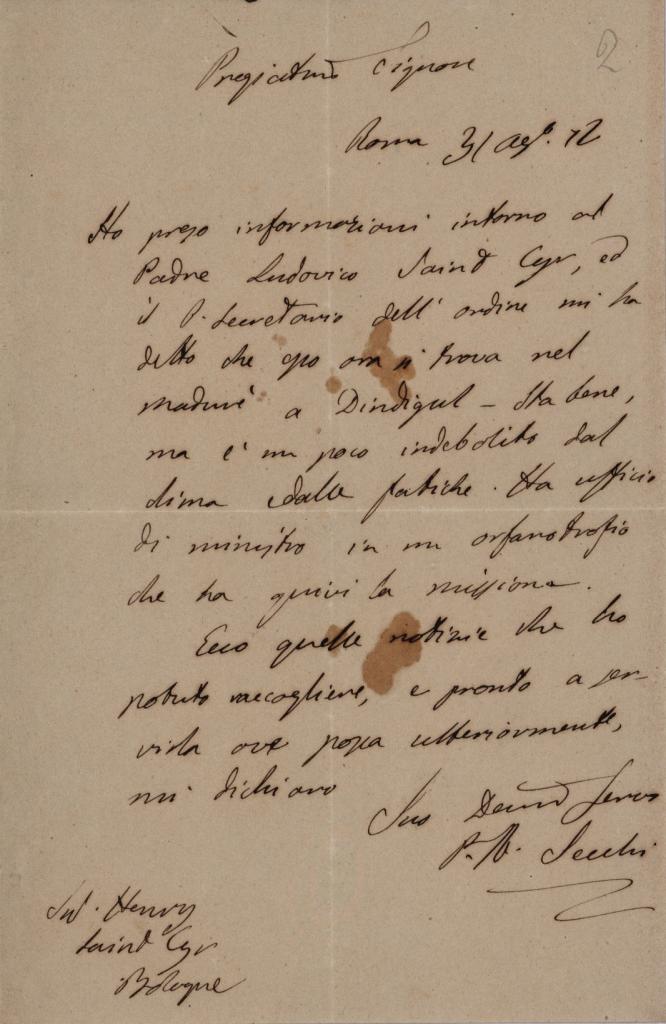 2
Pregiatmo Signore
Roma 31 Ago. 72
Ho preso informazioni intorno al
Padre Ludovico Saint Cyr, ed
il P. Secretario dell' ordine mi ha
detto che esso ora si trova nel
Maduré a Dindigul - Sta bene,
ma è un poco indebolito dal
clima e dalle fatiche. Ha ufficio
di ministro in un orfanotrofio
che ha quivi la missione.
Ecco quelle notizie che ho
potuto raccogliere, e pronto a ser-
virla ove possa ulteriormente,
mi dichiaro
Suo Servo
P. A. Secchi
Henry
Saint Cyr
Bologne